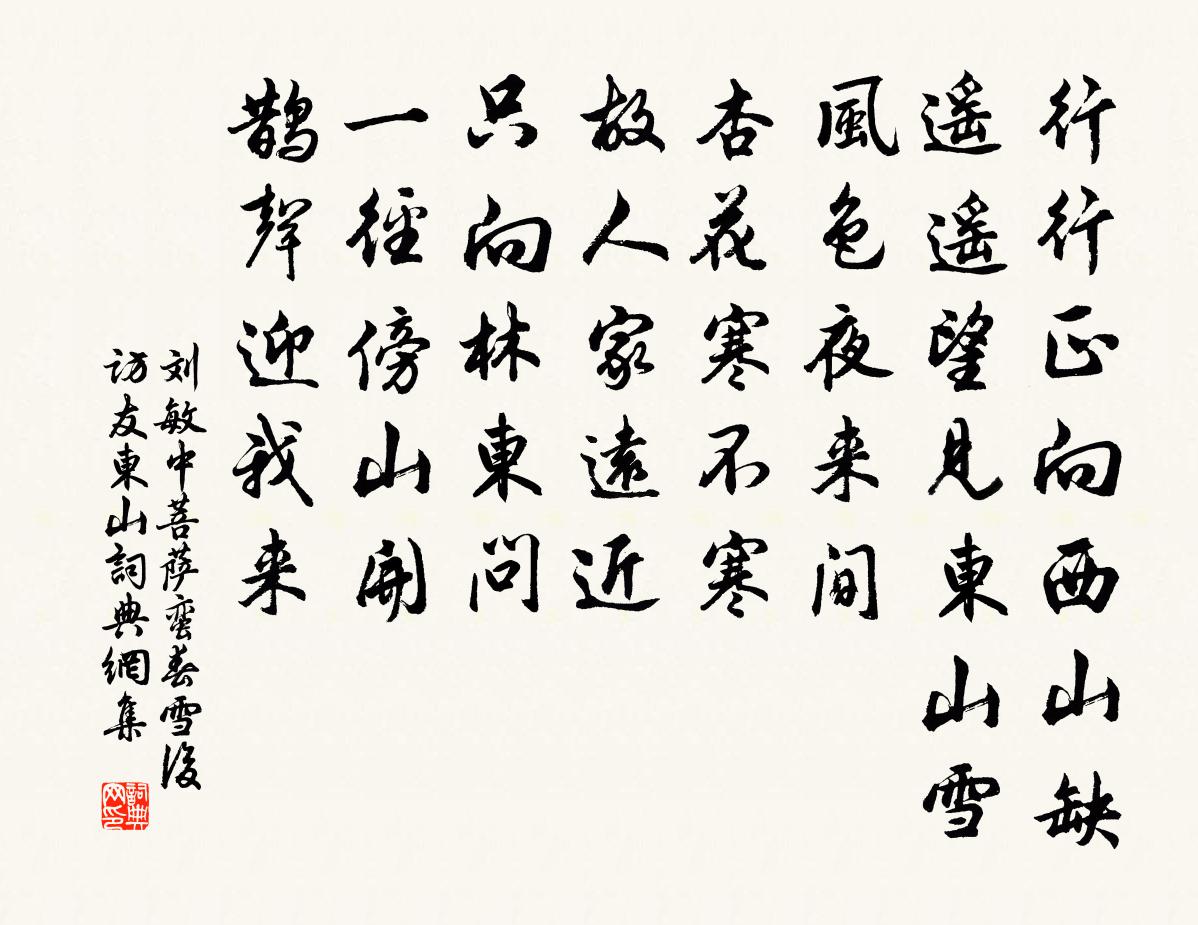 行行正向西山缺
遥遥望見東山雪
風色夜来间
杏花寒不寒
故人家遠近
只向林東问
一徑傍山開
鵲聲迎我来
刘敏中菩萨蛮春雪後
访友東山詞典網集
詞典
网印